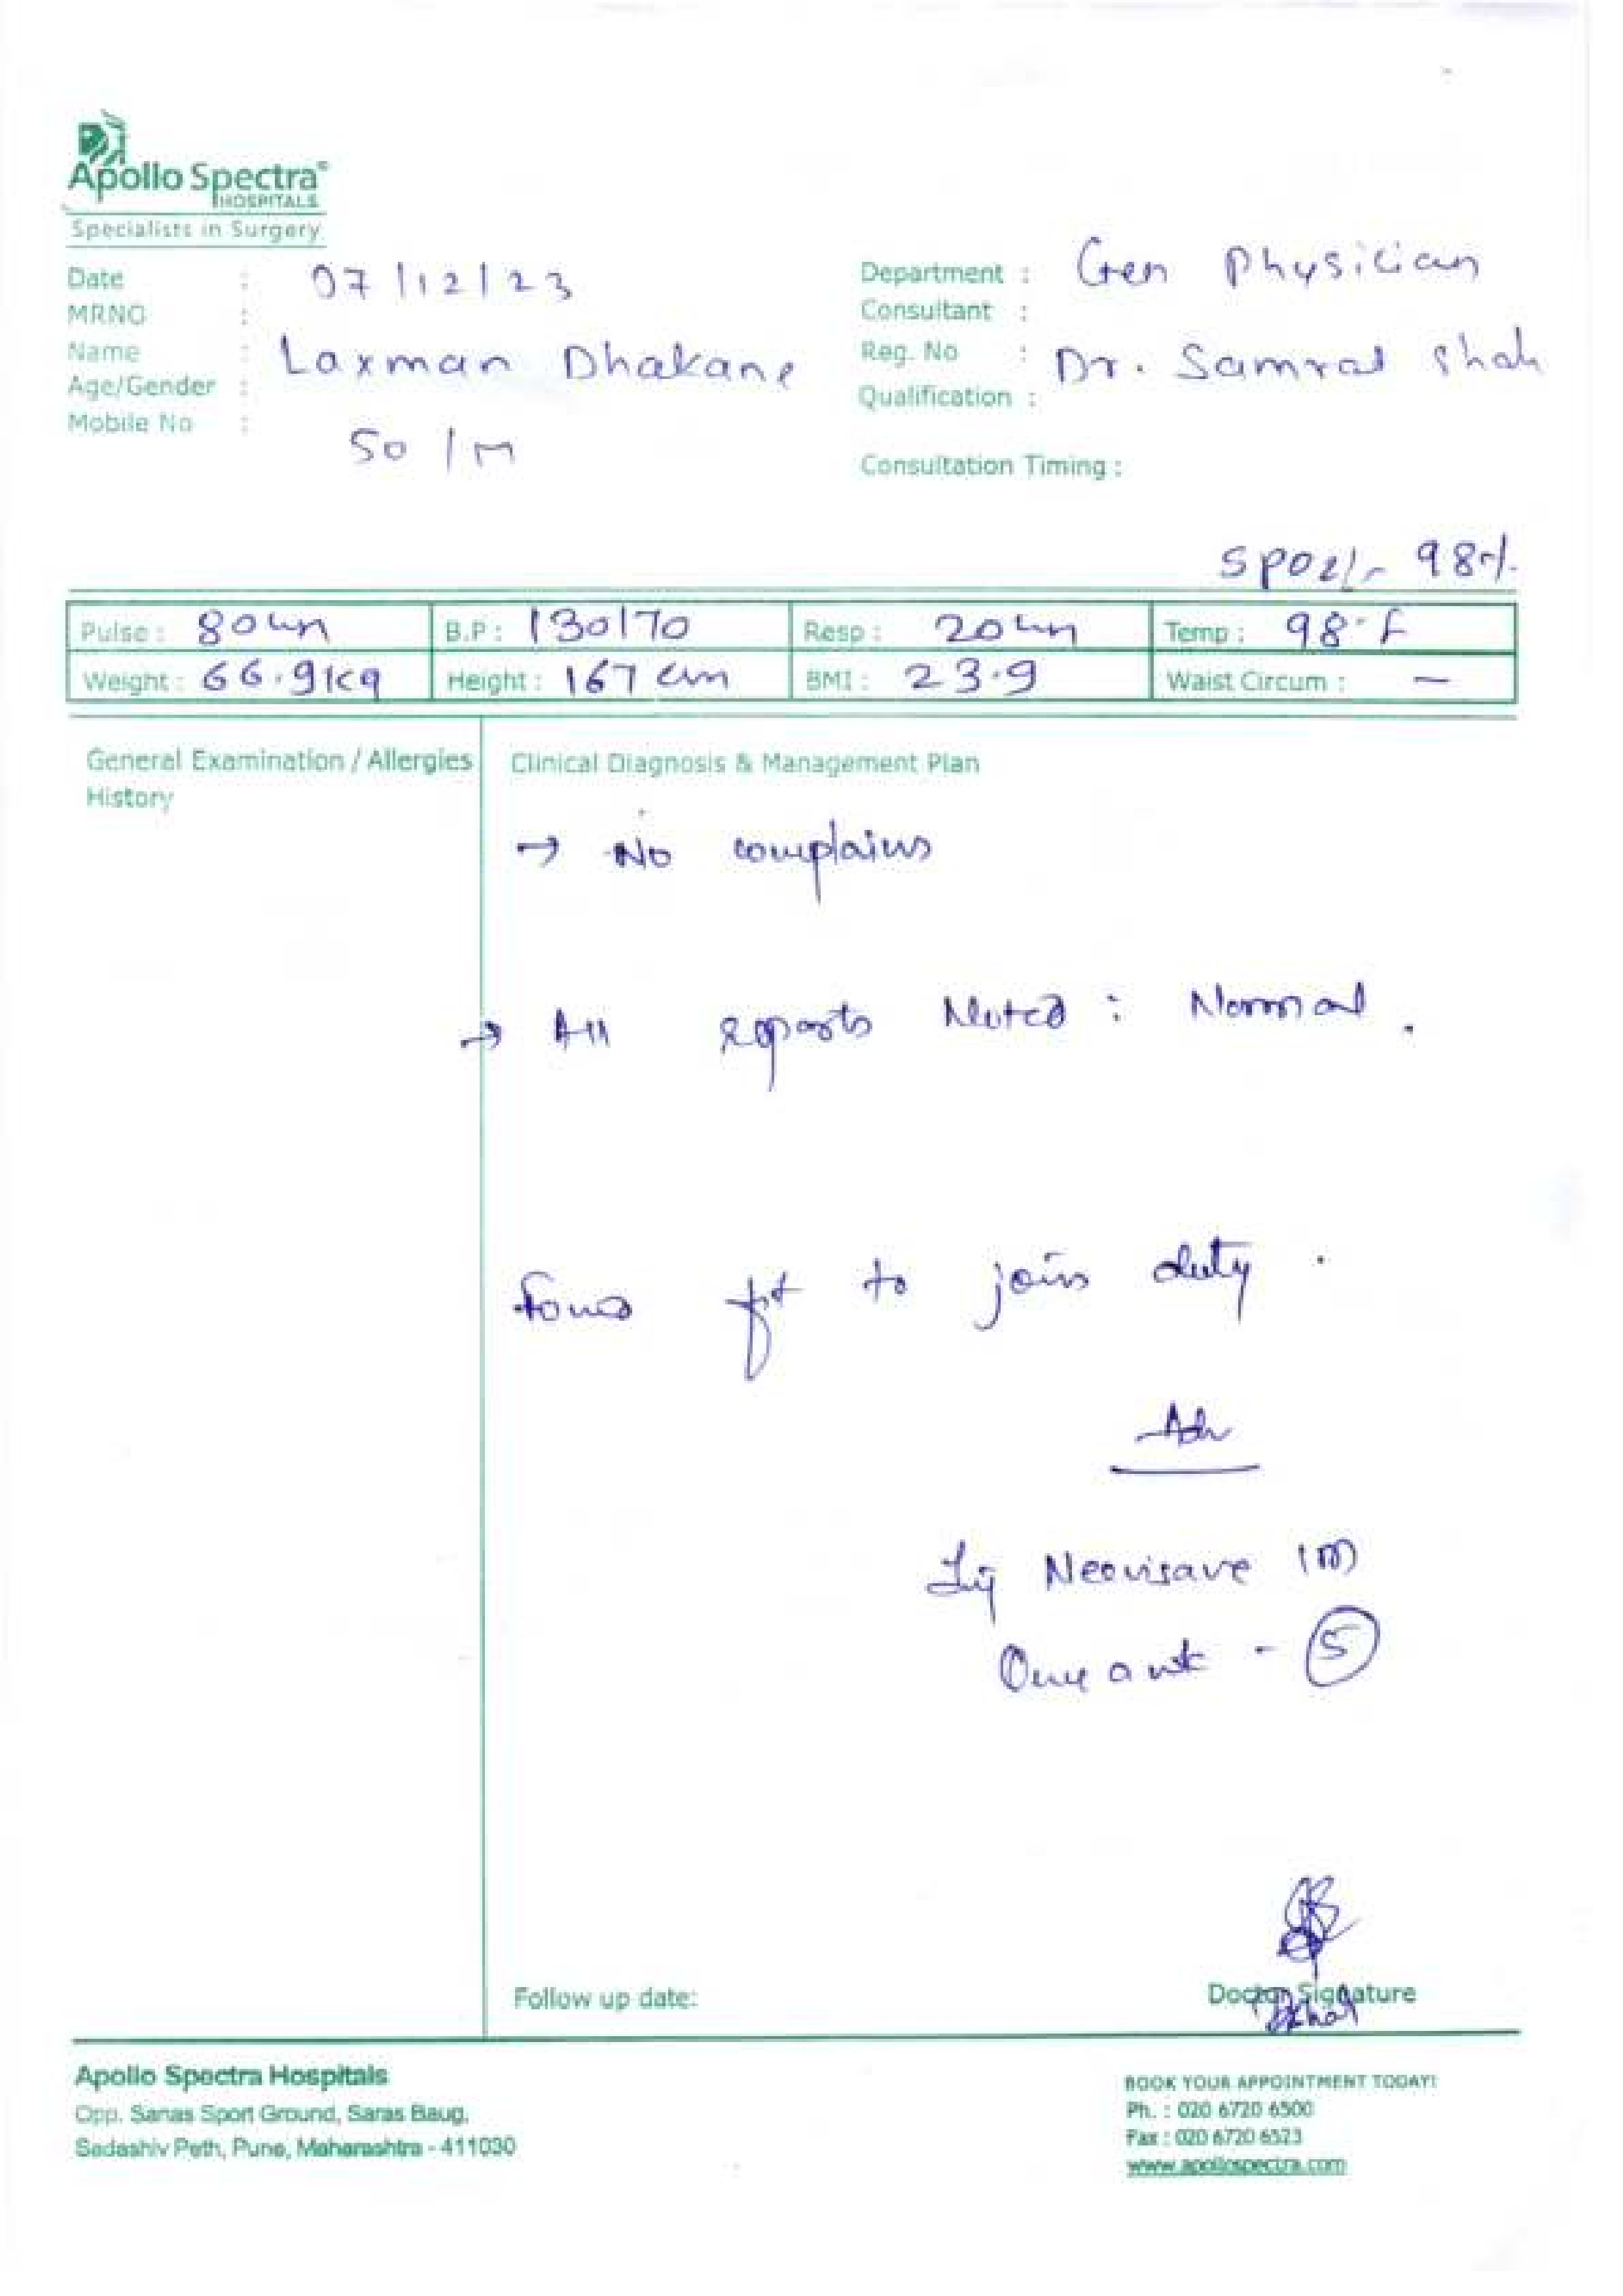 Apollo Spectra
HOSPITALS
Specialists in Surgery
Date : 07/12/23
MRNO :
Name : Laxman Dhakane
Age/Gender :
Mobile No :
50/M
Department : Gen Physician
Consultant :
Reg. No : Dr. Samrat Shah
Qualification :
Consultation Timing :
SPO2/- 98%
Pulse : 80 B.P : 130/70 Resp : 20 Temp : 98.F
Weight : 66.9kg Height : 167 cm BMI : 23.9 Waist Circum : —
General Examination / Allergies
History
Clinical Diagnosis & Management Plan
→ No complains
→ All reports Noted : Normal.
fit to join duty.
Adv
Inj Neovisave
- 5
Follow up date:
Doctor Signature
Apollo Spectra Hospitals
Opp. Sanas Sport Ground, Saras Baug,
Sadashiv Peth, Pune, Maharashtra - 411030
BOOK YOUR APPOINTMENT TODAY!
Ph. : 020 6720 6500
Fax : 020 6720 6523
www.apollospectra.com